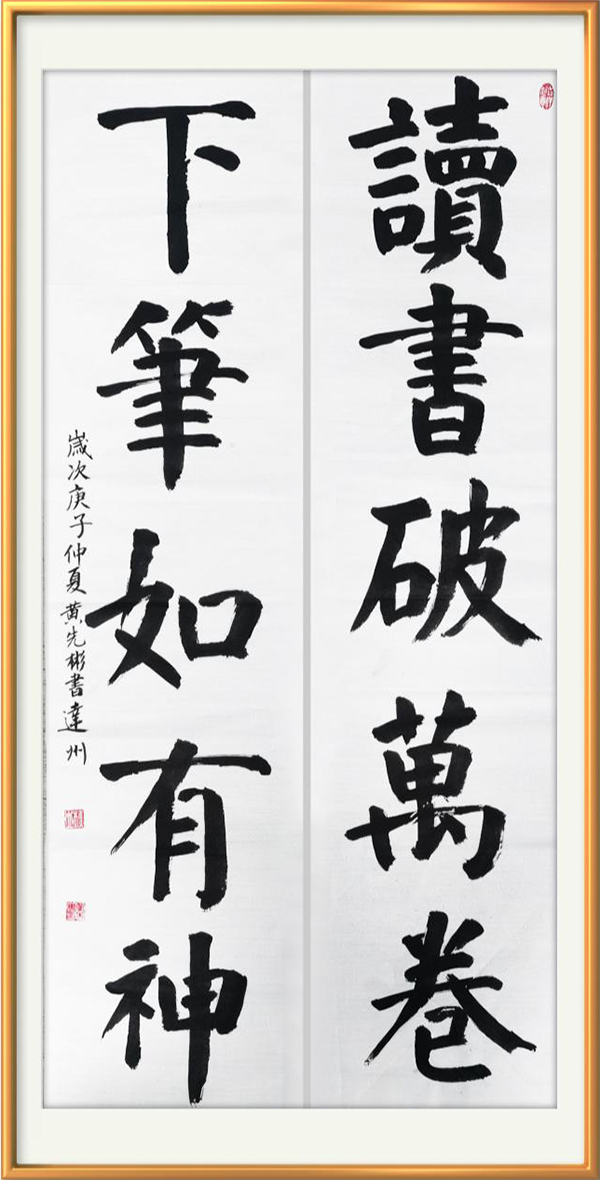 讀書破萬卷
下筆如有神
歲次庚子仲夏黃先彬書達州